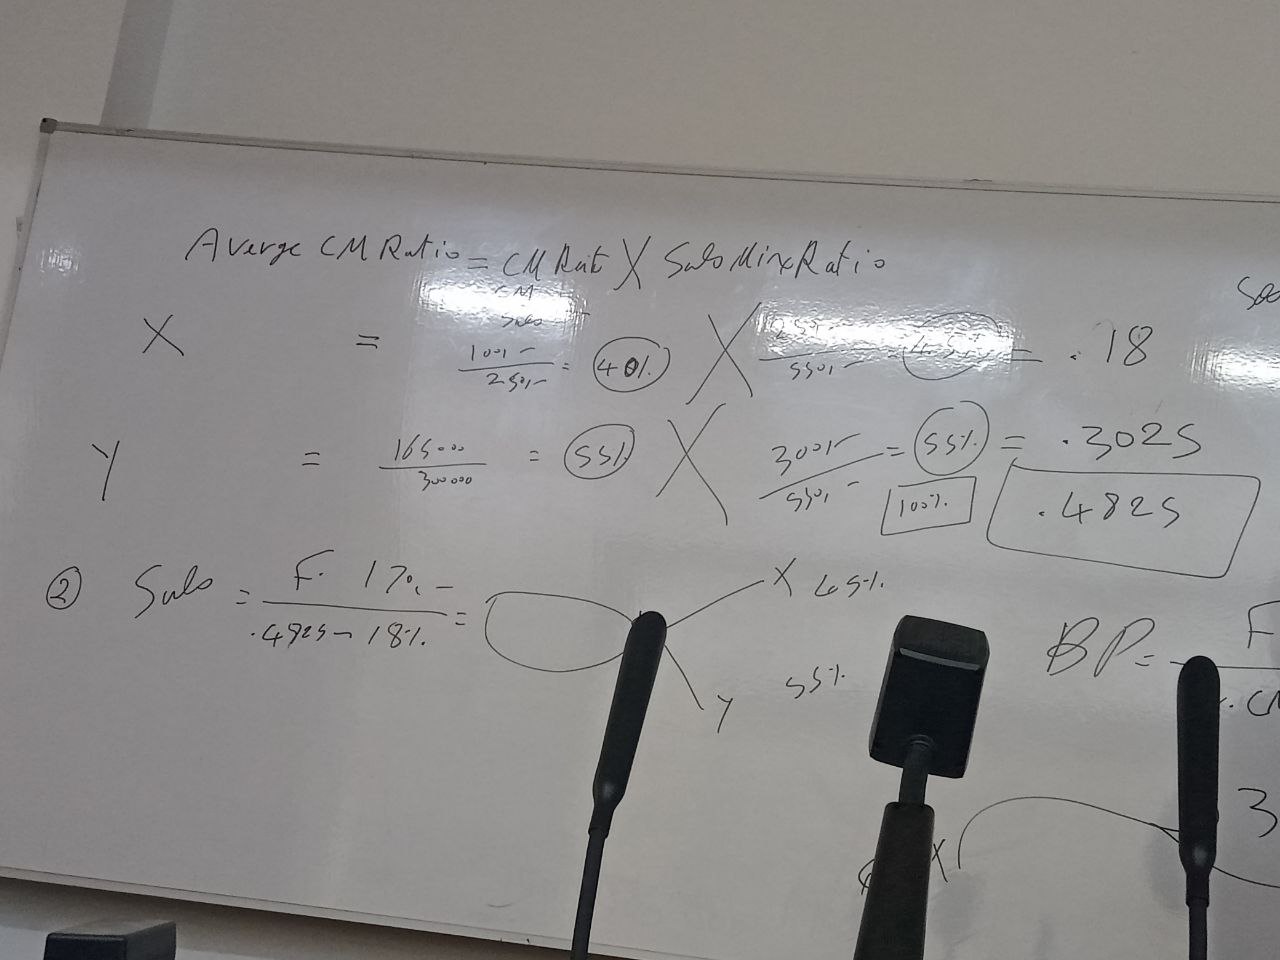 Averge CM Ratio = CM Ratio X Sales Mix Ratio
CM
Sales
X = 100,- / 250,- = 40% X 250,- / 550,- = 45% = .18
Y = 165000 / 300000 = 55% X 300,- / 550,- = 55% = .3025
100% .4825
② Sales = F. 170,- / .4825 - 18% = X 45%
Y 55%
BP = F
. CM
3
X